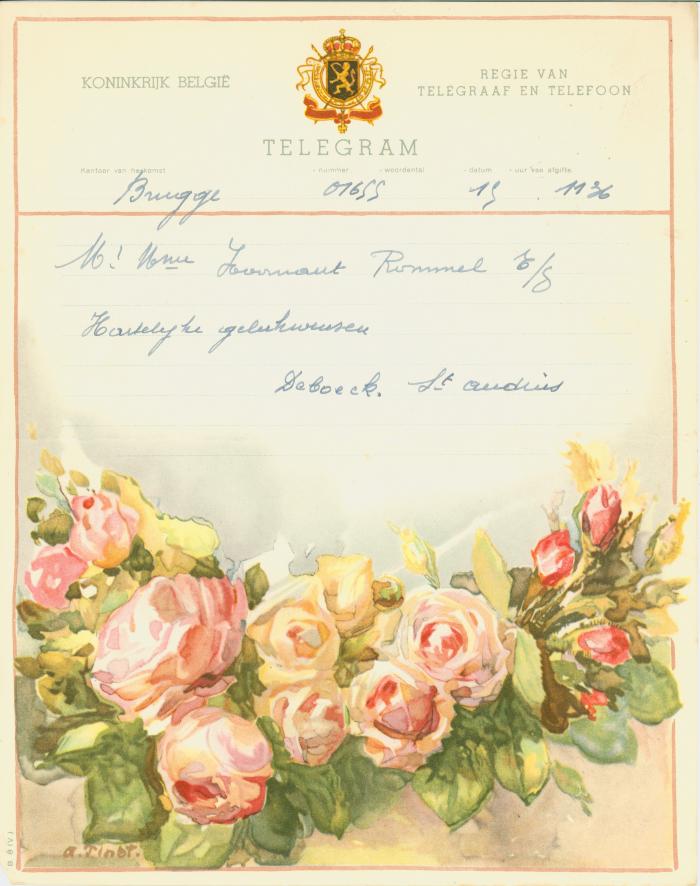 KONINKRIJK BELGIË
REGIE VAN
TELEGRAAF EN TELEFOON
TELEGRAM
Kantoor van herkomst - nummer - woordental - datum - uur van afgifte.
Brugge 01655 19 1136
Mr Mme Rommel
Hartelijke gelukwensen
Deboeck. St andries
B. 8 (V)